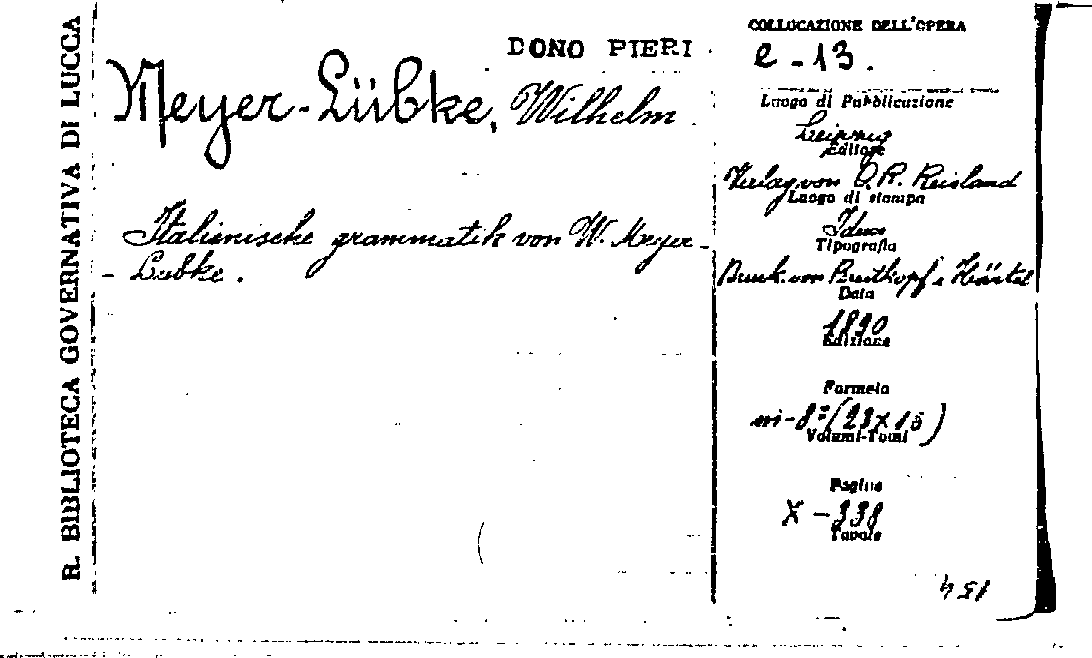 R. BIBLIOTECA GOVERNATIVA DI LUCCA
DONO PIERI
Meyer-Lübke, Wilhelm
Italienische grammatik von W. Meyer-
-Lubke.
COLLOCAZIONE DELL'OPERA
e-13.
Luogo di Pubblicazione
Leipzig
Editore
Verlag von O.R. Reisland
Luogo di stampa
Idem
Tipografia
Druck von Breitkopf e Härtel
Data
1890
Edizione
Formato
in-8° (23x15)
Volumi-Tomi
Pagine
X-338
Tavole
154